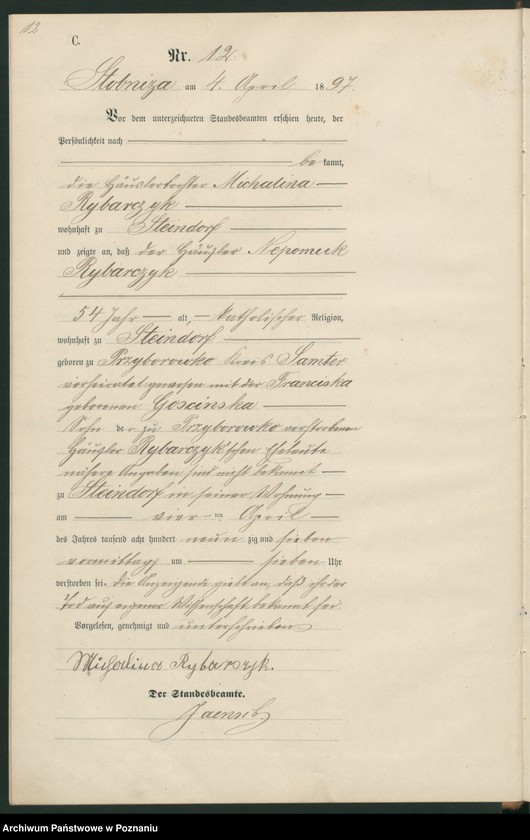 12
C.
Nr. 12
Stobniza am 4. April 1897.
Vor dem unterzeichneten Standesbeamten erschien heute, der
Persönlichkeit nach
be kannt,
die Häuslertochter Michalina
Rybarczyk
wohnhaft zu Steindorf
und zeigte an, daß der Häusler Nepomuk
Rybarczyk
54 Jahr alt, katholischer Religion,
wohnhaft zu Steindorf
geboren zu Przyborowko Kreis Samter
verheiratet gewesen mit der Franciska
geborenen Goscinska
Sohn der zu Przyborowko verstorbenen
Häusler Rybarczyk'schen Eheleute
nähere Angaben sind nicht bekannt
zu Steindorf in seiner Wohnung
am vier ten April
des Jahres tausend acht hundert neun zig und sieben
vormittags um sieben Uhr
verstorben sei. Die Anzeigende giebt an, daß ihr der
Tod aus eigener Wissenschaft bekannt sei.
Vorgelesen, genehmigt und unterschrieben
Michalina Rybarczyk.
Der Standesbeamte.
Jaensch
Archiwum Państwowe w Poznaniu